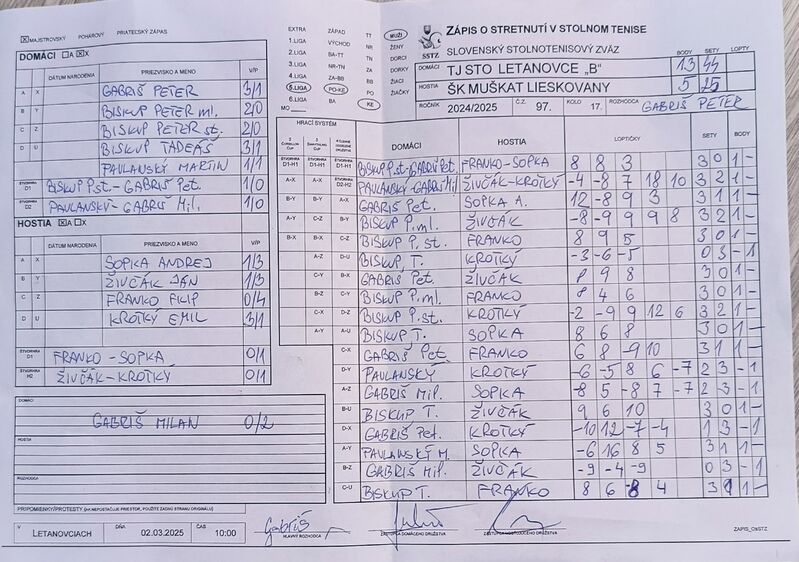 ☒ MAJSTROVSKÝ POHÁROVÝ PRIATEĽSKÝ ZÁPAS
DOMÁCI ☐A ☒X
DÁTUM NARODENIA PRIEZVISKO A MENO V/P
A X GABRIŠ PETER 3/1
B Y BISKUP PETER ml. 2/0
C Z BISKUP PETER st. 2/0
D U BISKUP TADEÁŠ 3/1
PAVLANSKÝ MARTIN 1/1
ŠTVORHRA D1 BISKUP P.st. - GABRIŠ Pet. 1/0
ŠTVORHRA D2 PAVLANSKÝ - GABRIŠ Mil. 1/0
HOSTIA ☒A ☐X
DÁTUM NARODENIA PRIEZVISKO A MENO V/P
A X SOPKA ANDREJ 1/3
B Y ŽIVČÁK JÁN 1/3
C Z FRANKO FILIP 0/4
D U KROTKÝ EMIL 3/1
ŠTVORHRA H1 FRANKO - SOPKA 0/1
ŠTVORHRA H2 ŽIVČÁK - KROTKÝ 0/1
DOMÁCI
GABRIŠ MILAN 0/2
HOSTIA
ROZHODCA
PRIPOMIENKY/PROTESTY (AK NEPOSTAČUJE PRIESTOR, POUŽITE ZADNÚ STRANU ORIGINÁLU)
V LETANOVCIACH DŇA 02.03.2025 ČAS 10:00
Gabriš
HLAVNÝ ROZHODCA
ZÁSTUPCA DOMÁCEHO DRUŽSTVA
ZÁSTUPCA HOSŤUJÚCEHO DRUŽSTVA
ZAPIS_OSSTZ
EXTRA ZÁPAD TT MUŽI
1.LIGA VÝCHOD NR ŽENY
2.LIGA BA-TT TN DORCI
3.LIGA NR-TN ZA DORKY
4.LIGA ZA-BB BB ŽIACI
5.LIGA PO-KE PO ŽIAČKY
6.LIGA BA KE
MO
SSTZ
ZÁPIS O STRETNUTÍ V STOLNOM TENISE
SLOVENSKÝ STOLNOTENISOVÝ ZVÄZ BODY SETY LOPTY
DOMÁCI TJ STO LETANOVCE „B" 13 44
HOSTIA ŠK MUŠKÁT LIESKOVANY 5 25
ROČNÍK 2024/2025 Č.Z. 97. KOLO 17. ROZHODCA GABRIŠ PETER
HRACÍ SYSTÉM
DOMÁCI HOSTIA LOPTIČKY SETY BODY
D1-H1 D1-H1 D1-H1 BISKUP P.st-GABRIŠ Pet. FRANKO-SOPKA 8 8 3 3 0 1 -
A-X A-X D2-H2 PAVLANSKÝ-GABRIŠ Mil ŽIVČÁK-KROTKÝ -4 -8 7 18 10 3 2 1 -
B-Y B-Y A-X GABRIŠ Pet. SOPKA A. 12 -8 9 3 3 1 1 -
A-Y C-Z B-Y BISKUP P.ml. ŽIVČÁK -8 -9 9 9 8 3 2 1 -
B-X B-X C-Z BISKUP P. st. FRANKO 8 9 5 3 0 1 -
A-Z D-U BISKUP, T. KROTKÝ -3 -6 -5 0 3 - 1
C-Y B-X GABRIŠ Pet. ŽIVČÁK 8 9 8 3 0 1 -
B-Z C-Y BISKUP P.ml. FRANKO 8 4 6 3 0 1 -
C-X D-Z BISKUP P.st. KROTKÝ -2 -9 9 12 6 3 2 1 -
A-Y A-U BISKUP T. SOPKA 8 6 8 3 0 1 -
C-X GABRIŠ Pet. FRANKO 6 8 -9 10 3 1 1 -
D-Y PAVLANSKÝ KROTKÝ -6 -5 8 6 -7 2 3 - 1
A-Z GABRIŠ Mil. SOPKA -8 5 -8 7 -7 2 3 - 1
B-U BISKUP T. ŽIVČÁK 9 6 10 3 0 1 -
D-X GABRIŠ Pet. KROTKÝ -10 12 -7 -4 1 3 - 1
A-Y PAVLANSKÝ M. SOPKA -6 16 8 5 3 1 1 -
B-Z GABRIŠ Mil. ŽIVČÁK -9 -4 -9 0 3 - 1
C-U BISKUP T. FRANKO 8 6 -8 4 3 1 1 -